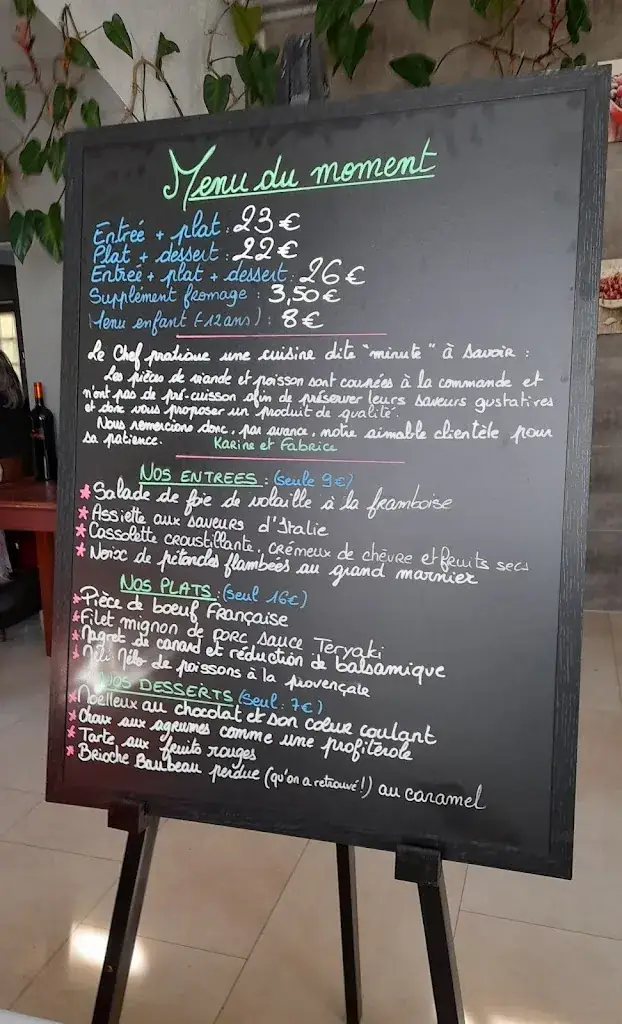 Menu du moment
Entrée + plat : 23 €
Plat + dessert : 22 €
Entrée + plat + dessert : 26 €
Supplément fromage : 3,50 €
Menu enfant (-12 ans) : 8 €
Le Chef pratique une cuisine dite "minute" à savoir :
Les pièces de viande et poisson sont coupées à la commande et
n'ont pas de pré-cuisson afin de préserver leurs saveurs gustatives
et donc vous proposer un produit de qualité.
Nous remercions donc, par avance, notre aimable clientèle pour
sa patience. Karine et Fabrice
NOS ENTREES : (seule 9€)
* Salade de foie de volaille à la framboise
* Assiette aux saveurs d'Italie
* Cassolette croustillante, crémeux de chèvre et fruits secs
* Noix de pétoncles flambées au grand marnier
NOS PLATS : (seul 16€)
* Pièce de boeuf Française
* Filet mignon de porc sauce Teryaki
* Magret de canard et réduction de balsamique
* Méli Mélo de poissons à la provençale
NOS DESSERTS (seul : 7€)
* Moelleux au chocolat et son cœur coulant
* Choux aux agrumes comme une profiterole
* Tarte aux fruits rouges
* Brioche Baubeau perdue (qu'on a retrouvé !) au caramel